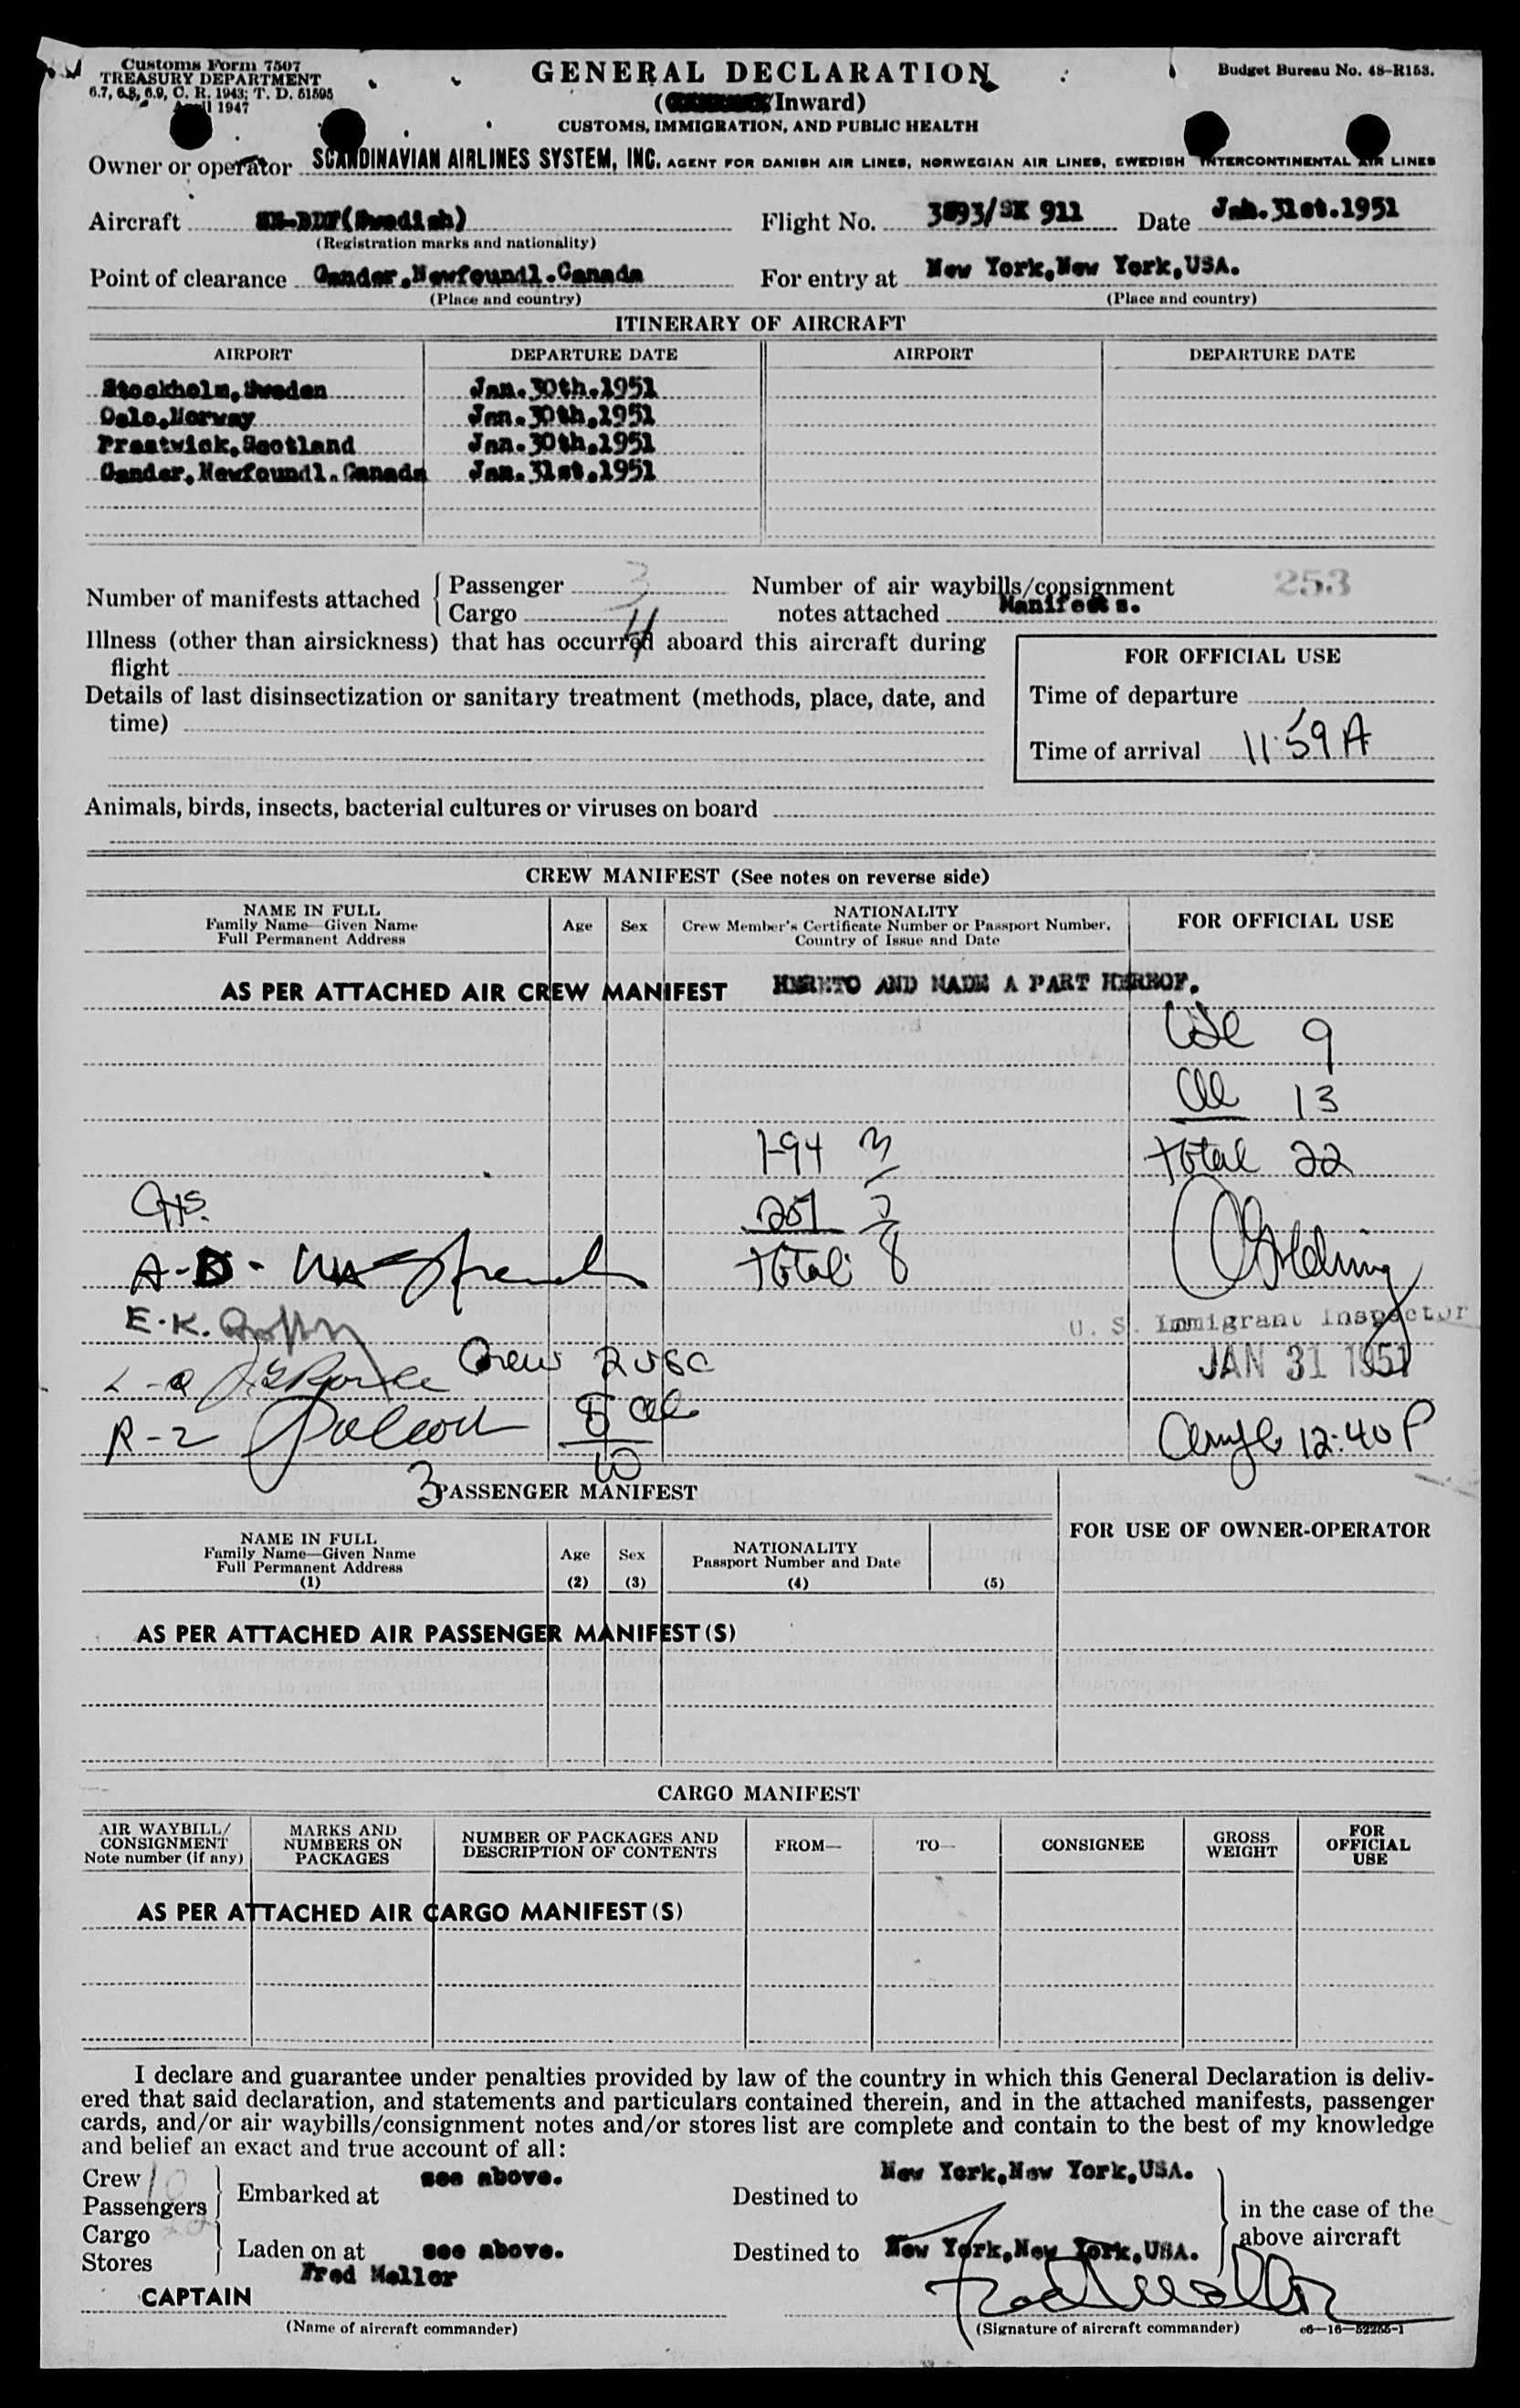 Customs Form 7507
TREASURY DEPARTMENT
6.7, 6.8, 6.9, C. R. 1943; T. D. 51595
April 1947
GENERAL DECLARATION
(Inward)
CUSTOMS, IMMIGRATION, AND PUBLIC HEALTH
Budget Bureau No. 48-R153.
Owner or operator SCANDINAVIAN AIRLINES SYSTEM, INC. AGENT FOR DANISH AIR LINES, NORWEGIAN AIR LINES, SWEDISH INTERCONTINENTAL AIR LINES
Aircraft (Swedish) Flight No. 3893/SK 911 Date Jan.31st.1951
(Registration marks and nationality)
Point of clearance Gander,Newfoundl.Canada For entry at New York,New York,USA.
(Place and country) (Place and country)
ITINERARY OF AIRCRAFT
AIRPORT DEPARTURE DATE AIRPORT DEPARTURE DATE
Stockholm,Sweden Jan.30th.1951
Oslo,Norway Jan.30th,1951
Prestwick,Scotland Jan.30th,1951
Gander,Newfoundl.Canada Jan.31st,1951
Number of manifests attached { Passenger 3 Number of air waybills/consignment 253
Cargo 4 notes attached Manifests.
Illness (other than airsickness) that has occurred aboard this aircraft during
flight
Details of last disinsectization or sanitary treatment (methods, place, date, and
time)
FOR OFFICIAL USE
Time of departure
Time of arrival 11:59 A
Animals, birds, insects, bacterial cultures or viruses on board
CREW MANIFEST (See notes on reverse side)
NAME IN FULL
Family Name—Given Name
Full Permanent Address
Age Sex
NATIONALITY
Crew Member's Certificate Number or Passport Number,
Country of Issue and Date
FOR OFFICIAL USE
AS PER ATTACHED AIR CREW MANIFEST HERETO AND MADE A PART HEREOF.
USC 9
al 13
1-94 3 total 22
251
total 8
E.K.
U. S. Immigrant Inspector
Crew 2 USC JAN 31 1951
R-2 8 al 12:40 P
10
3 PASSENGER MANIFEST
NAME IN FULL
Family Name—Given Name
Full Permanent Address
(1)
Age
(2)
Sex
(3)
NATIONALITY
Passport Number and Date
(4) (5)
FOR USE OF OWNER-OPERATOR
AS PER ATTACHED AIR PASSENGER MANIFEST(S)
CARGO MANIFEST
AIR WAYBILL/
CONSIGNMENT
Note number (if any)
MARKS AND
NUMBERS ON
PACKAGES
NUMBER OF PACKAGES AND
DESCRIPTION OF CONTENTS
FROM— TO— CONSIGNEE
GROSS
WEIGHT
FOR
OFFICIAL
USE
AS PER ATTACHED AIR CARGO MANIFEST(S)
I declare and guarantee under penalties provided by law of the country in which this General Declaration is deliv-
ered that said declaration, and statements and particulars contained therein, and in the attached manifests, passenger
cards, and/or air waybills/consignment notes and/or stores list are complete and contain to the best of my knowledge
and belief an exact and true account of all:
Crew 10
Passengers 22
Embarked at see above. Destined to New York,New York,USA.
in the case of the
above aircraft
Cargo
Stores
Laden on at see above. Destined to New York,New York,USA.
Fred Mellor
CAPTAIN
(Name of aircraft commander) (Signature of aircraft commander) c6—16—52255-1